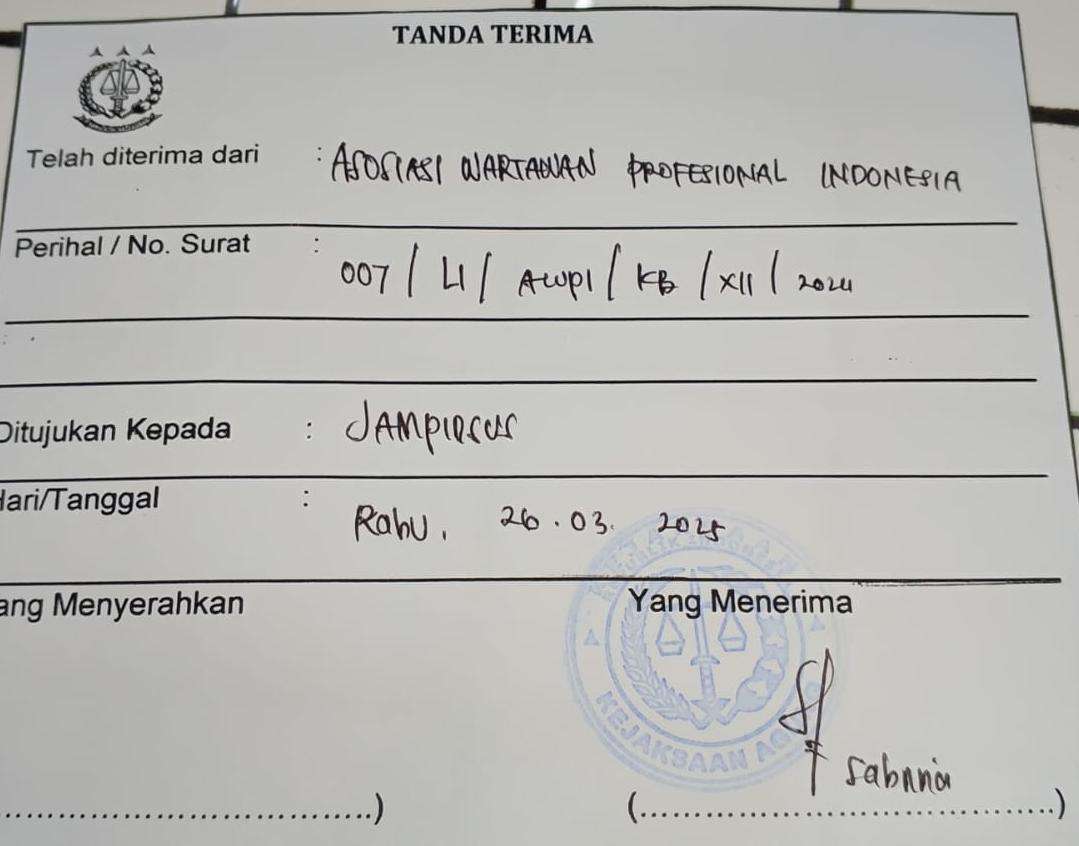 TANDA TERIMA
Telah diterima dari : ASOSIASI WARTAWAN PROFESIONAL INDONESIA
Perihal / No. Surat : 007 / LI / AWPI / KB / XII / 2024
Ditujukan Kepada : JAMPIDSUS
Hari/Tanggal : Rabu, 26.03.2025
ang Menyerahkan Yang Menerima
KEJAKSAAN AG
Sabnna
....................................) (....................................)